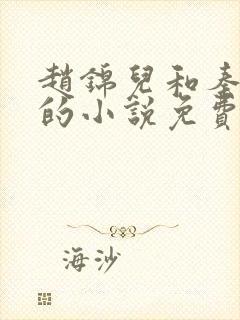 趙錦兒和秦
的小說免費
海沙